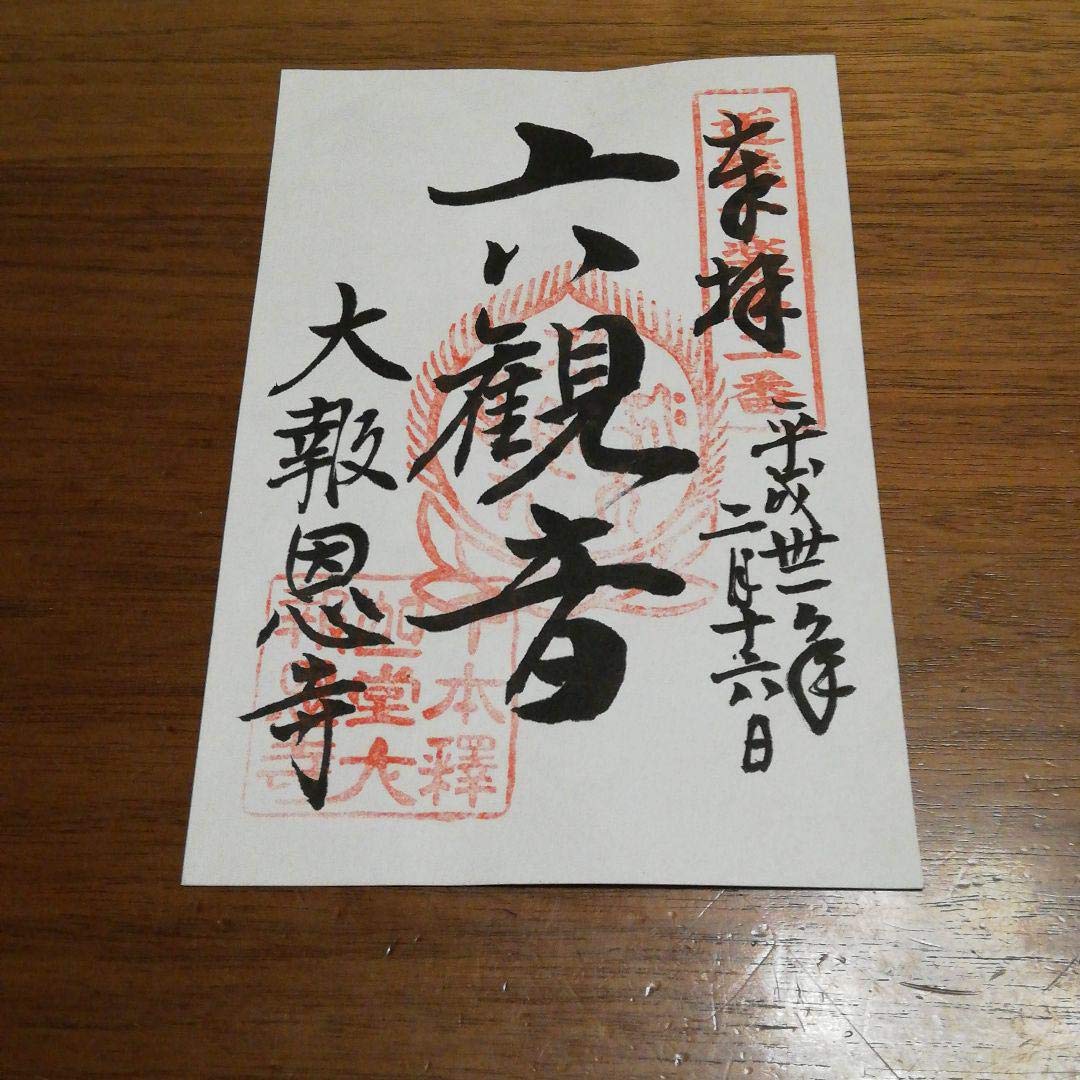 奉拝
平成卅一年
二月十六日
六観音
大報恩寺
千本釋
迦堂大
報恩寺